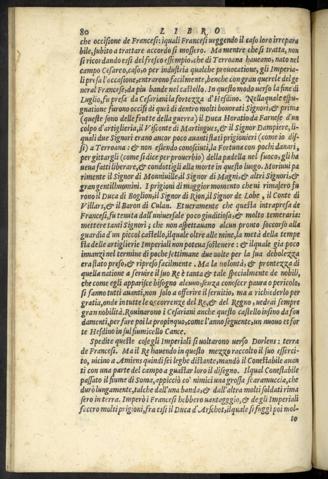 80 LIBRO
che occisione de Francesi: iquali Francesi ueggendo il caso loro irrepara
bile, subito a trattare accordo si mossero. Ma mentre che si tratta, non
si ricordando essi del fresco essempio, che di Terroana haueano, nato nel
campo Cesareo, caso, o per industria qualche prouocatione, gli Imperia-
li presa l'occasione, entrarono facilmente, benche con gran querele del ge
neral Francese, da piu bande nel castello. In questo modo uerso la fine di
Luglio, fu presa da Cesariani la fortezza d'Hesdino. Nella quale espu-
gnatione furono occisi de quei di dentro molti honorati Signori, & prima
(queste sono delle frutte della guerra) il Duca Horatio da Farnese d'un
colpo d'artiglieria, il Visconte di Martingues, & il Signor Dampiere, li-
quali due Signori erano ancor poco auanti stati prigionieri (come io dis-
si) a Terroana: & non essendo conosciuti, la Fortuna con pochi danari,
per gittargli (come si dice per prouerbio) della padella nel fuoco, gli ha
uena fatti liberare, & condottigli alla morte in questo luogo. Moriuui pa
rimente il Signor di Monniuille, il Signor di Magni, & altri Signori, &
gran gentilhuomini. I prigioni di maggior momento che ui rimasero fu
rono il Duca di Boglion, il Signor di Rion, il Signor de Lobe, il Conte di
Villars, & il Baron di Culan. Et ueramente che questa intrapresa de
Francesi, fu tenuta dall'uniuersale poco giuditiosa, & molto temeraria:
mettere tanti Signori, che non aspettauano alcun pronto soccorso alla
guardia di un piccol castello, ilquale oltre alle mine, la metà della tempe
sta delle artiglierie Imperiali non poteua sostenere: & ilquale gia poco
innanzi nel termine di poche settimane due uolte per la sua debolezza
era stato preso, & ripreso facilmente. Ma la uolontà, & prontezza di
quella natione a seruire il suo Re è tanta, & tale specialmente de nobili,
che come egli apparisce bisogno alcuno, senza consider punto o pericolo,
si fanno tutti auanti, non solo a offerire il seruitio, ma a richiederlo per
gratia, onde in tutte le occorrenze del Re, & del Regno, uedrai sempre
gran nobiltà. Rouinarono i Cesariani anche questo castello insino da fon
damenti, per fare poi la propinquo, come l'anno seguente, un nuouo et for
te Hesdino in sul fiumicello Cance.
Spedite queste cose, gli Imperiali si uoltarono uerso Dorlens: terra
de Francesi. Ma il Re hauendo in questo mezzo raccolto il suo esserci-
to, uicino a Amiens quindici leghe distante, mandò il Conestabile auan
ti con una parte del campo a guastar loro il disegno. Ilqual Conestabile
passato il fiume di Soma, appicciò co' nimici una grossa scaramuccia, che
durò lungamente, talche dall'una banda, & dall'altra molti soldati rima
sero in terra. Imperò i Francesi hebbero uantaggio, & degli Imperiali
fecero molti prigioni, fra essi il Duca d'Arschot, ilquale si fuggì poi mol-
to